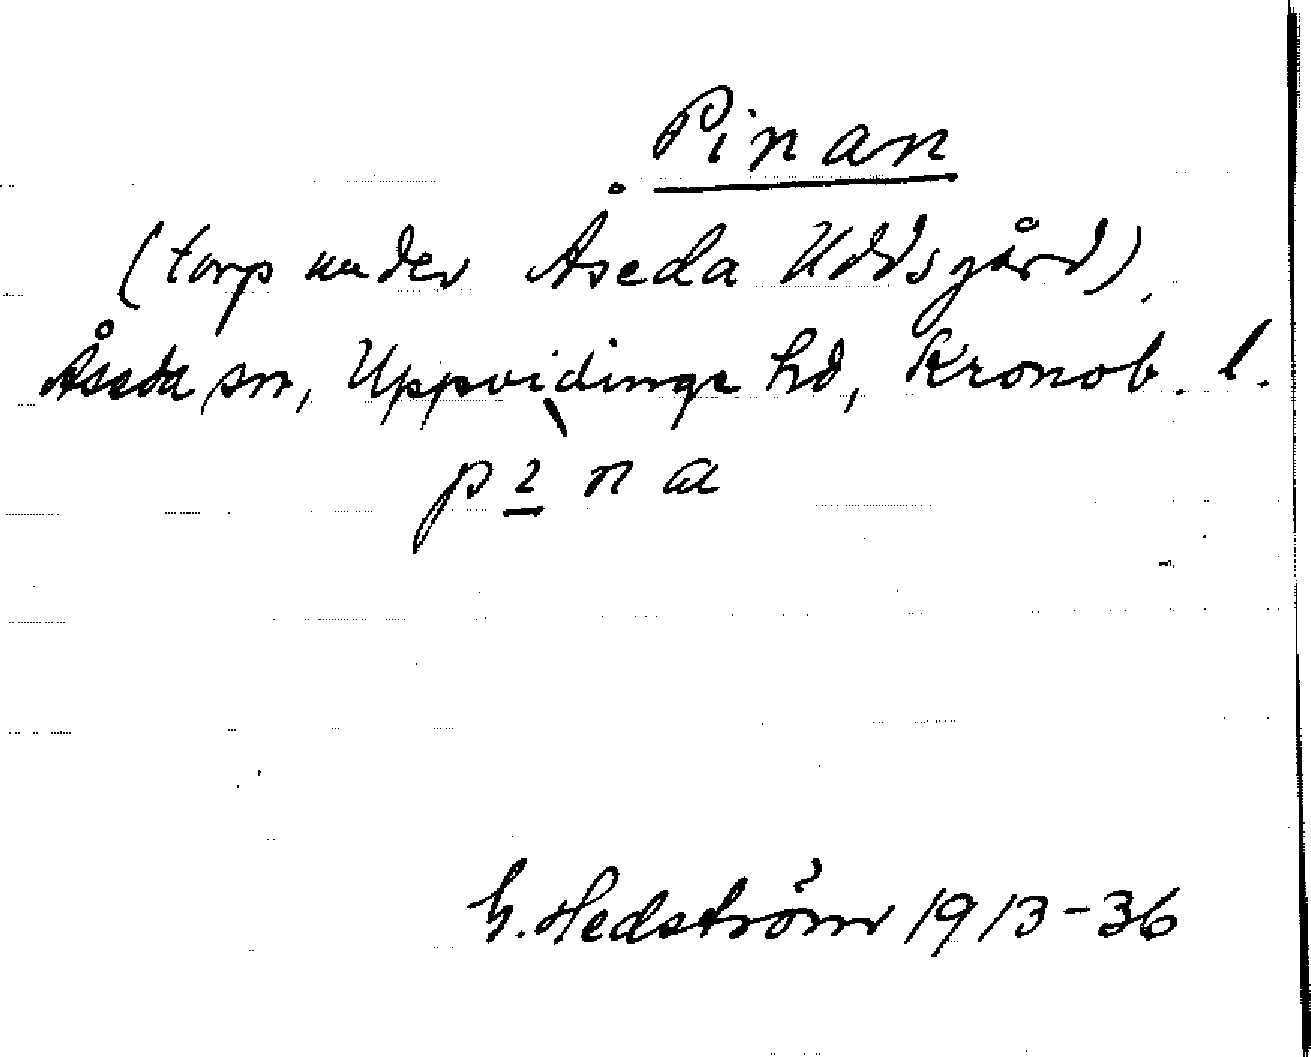 Pinan
(torp under Åseda Uddsgård),
Åseda sn, Uppvidinge hd, Kronob. l.
p ì n a
G. Hedström 1913-36